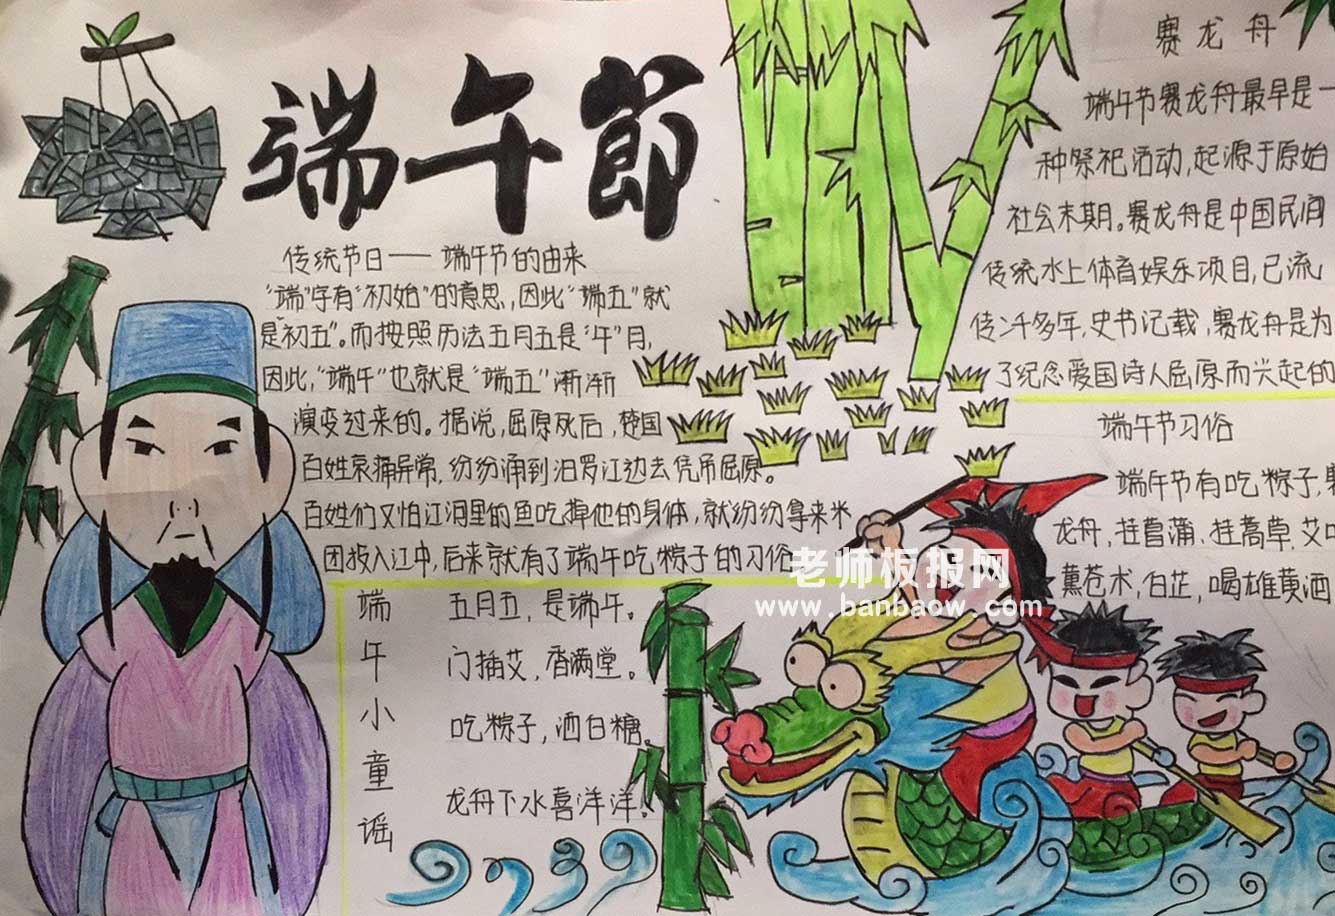 端午節
传统节日——端午节的由来
“端”字有“初始”的意思,因此“端五”就
是“初五”。而按照历法五月五是“午”月,
因此,“端午”也就是“端五”渐渐
演变过来的。据说,屈原死后,楚国
百姓哀痛异常,纷纷涌到汨罗江边去凭吊屈原。
百姓们又怕江河里的鱼吃掉他的身体,就纷纷拿来米
团投入江中,后来就有了端午吃粽子的习俗
端午小童谣
五月五,是端午。
门插艾,香满堂。
吃粽子,洒白糖
龙舟下水喜洋洋。
赛龙舟
端午节赛龙舟最早是一
种祭祀活动,起源于原始
社会末期。赛龙舟是中国民间
传统水上体育娱乐项目,已流
传千多年,史书记载,赛龙舟是为
了纪念爱国诗人屈原而兴起的
端午节习俗
端午节有吃粽子,
龙舟,挂菖蒲、挂蒿草、艾
薰苍术,白芷,喝雄黄酒
老师板报网
www.banbaow.com